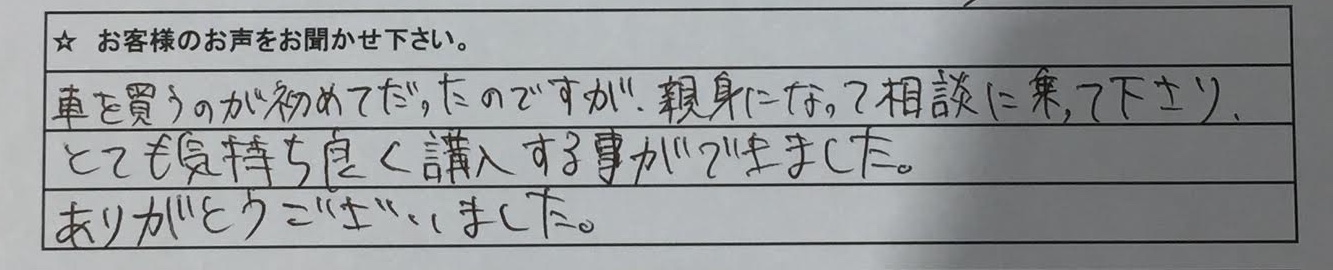 ☆ お客様のお声をお聞かせ下さい。
車を買うのが初めてだったのですが、親身になって相談に乗って下さり、
とても気持ち良く講入する事ができました。
ありがとうございました。